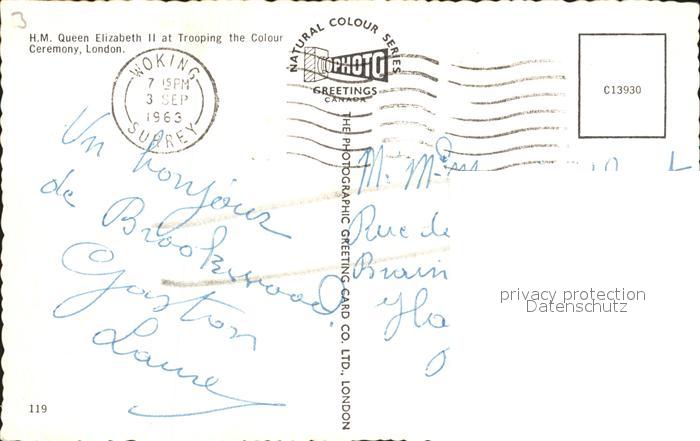 3
H.M. Queen Elizabeth II at Trooping the Colour
Ceremony, London.
WOKING
7 15 PM
3 SEP
1963
SURREY
NATURAL COLOUR SERIES
PHOTO
GREETINGS
CANADA
C13930
THE PHOTOGRAPHIC GREETING CARD CO. LTD., LONDON
Un bonjour
de Brookwood.
Gaston
Laure
M. Mme
Rue de
Brain
privacy protection
Datenschutz
119